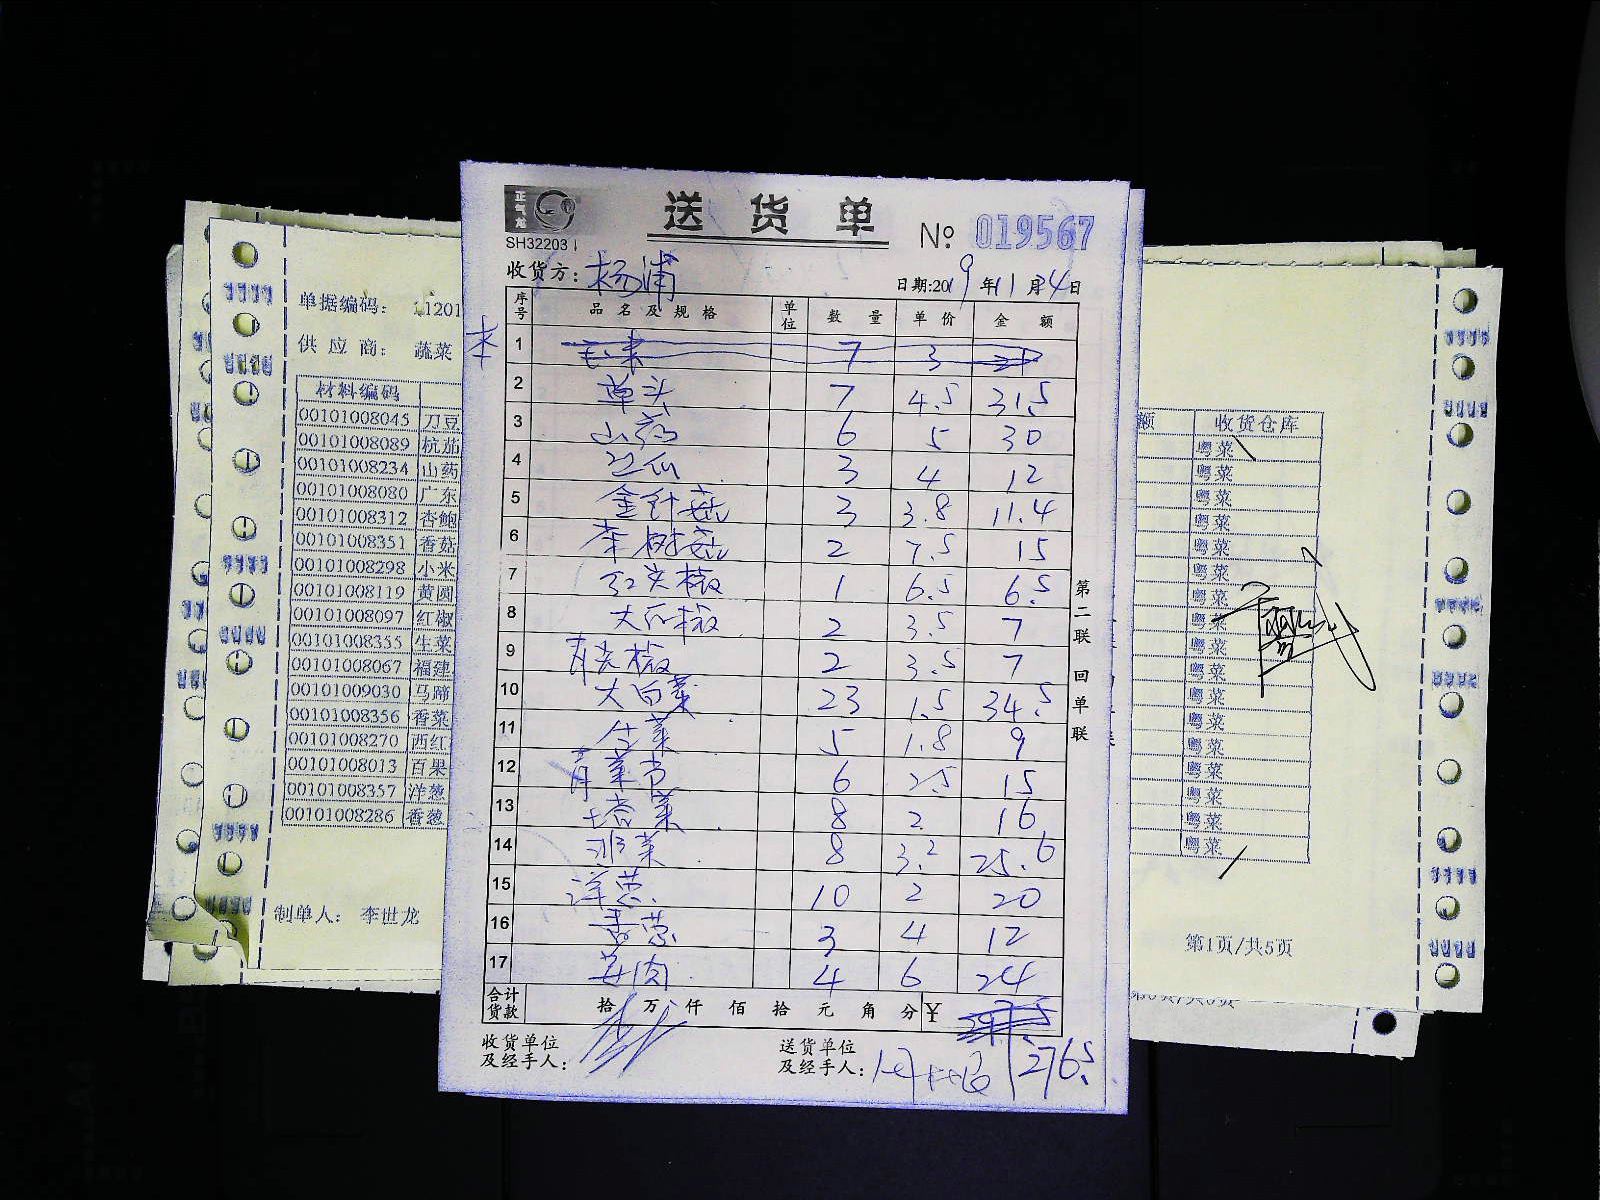 正气龙
SH32203
送货单
№ 019567
收货方: 杨浦
日期:2019年11月4日
序号 品名及规格 单位 数量 单价 金额
李
1 毛菜 7 3 21
2 草头 7 4.5 31.5
3 山药 6 5 30
4 丝瓜 3 4 12
5 金针菇 3 3.8 11.4
6 茶树菇 2 7.5 15
7 红尖椒 1 6.5 6.5
8 大瓜椒 2 3.5 7
9 青尖椒 2 3.5 7
10 大白菜 23 1.5 34.5
11 生菜 5 1.8 9
12 青菜 6 2.5 15
13 塔菜 8 2 16
14 菜 8 3.2 25.6
15 洋葱 10 2 20
16 香葱 3 4 12
17 肉 4 6 24
合计货款 拾 万 仟 佰 拾 元 角 分 ¥
276.5
收货单位及经手人:
送货单位及经手人:
第二联 回单联
单据编码: 11201
供应商: 蔬菜
材料编码
00101008045 刀豆
00101008089 杭茄
00101008234 山药
00101008080 广东
00101008312 杏鲍
00101008351 香菇
00101008298 小米
00101008119 黄圆
00101008097 红椒
00101008355 生菜
00101008067 福建
00101009030 马蹄
00101008356 香菜
00101008270 西红
00101008013 百果
00101008357 洋葱
00101008286 香葱
制单人: 李世龙
额 收货仓库
粤菜
粤菜
粤菜
粤菜
粤菜
粤菜
粤菜
粤菜
粤菜
粤菜
粤菜
粤菜
粤菜
粤菜
粤菜
粤菜
粤菜
第1页/共5页